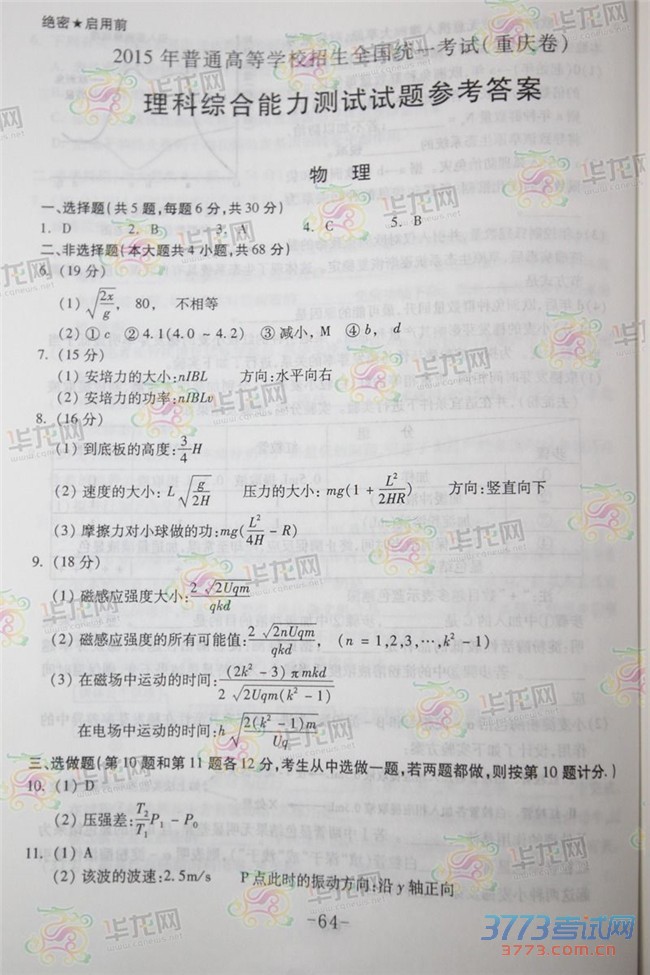 绝密★启用前
2015年普通高等学校招生全国统一考试(重庆卷)
理科综合能力测试试题参考答案
物 理
一、选择题(共5题,每题6分,共30分)
1. D 2. B 3. A 4. C 5. B
二、非选择题(本大题共4小题,共68分)
6. (19分)
(1) √(2x/g), 80, 不相等
(2) ①c ②4.1(4.0~4.2) ③减小, M ④b, d
7. (15分)
(1) 安培力的大小:nIBL 方向:水平向右
(2) 安培力的功率:nIBLv
8. (16分)
(1) 到底板的高度:3/4 H
(2) 速度的大小: L√(g/2H) 压力的大小: mg(1 + L²/2HR) 方向:竖直向下
(3) 摩擦力对小球做的功:mg(L²/4H - R)
9. (18分)
(1) 磁感应强度大小:2√(2Uqm)/qkd
(2) 磁感应强度的所有可能值:2√(2nUqm)/qkd, (n = 1,2,3,…,k² - 1)
(3) 在磁场中运动的时间:(2k² - 3)πmkd/2√(2Uqm(k² - 1))
在电场中运动的时间:h√(2(k² - 1)m/Uq)
三、选做题(第10题和第11题各12分,考生从中选做一题,若两题都做,则按第10题计分.)
10. (1) D
(2) 压强差:T₂/T₁ P₁ - P₀
11. (1) A
(2) 该波的波速:2.5m/s P点此时的振动方向:沿y轴正向
-64-
3773考试网
3773.com.cn
华龙网
www.cqnews.net